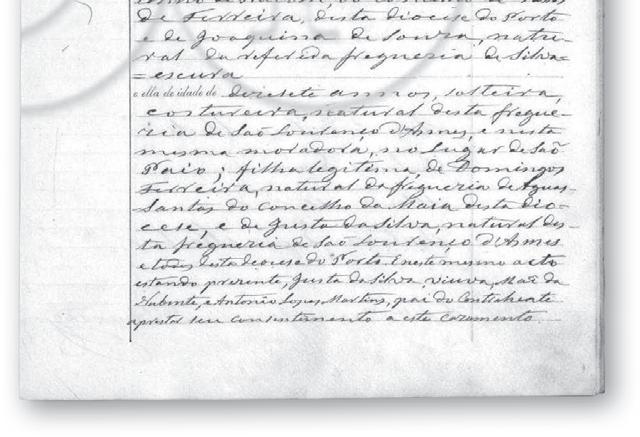 de Ferreira, desta diocese do Porto
e de Joaquina de Souza, natu-
ral da referida freguezia de Silva=
=escura
e ella de idade de dezesete annos, solteira,
costureira, natural desta fregue-
zia de São Lourenço d'Asmes, e nesta
mesma moradora, no lugar de São
Paio; filha legitima, de Domingos
Ferreira, natural da freguezia de Aguas-
Santas do concelho da Maia desta dio-
cese, e de Justa da Silva, natural des-
ta freguezia de São Lourenço d'Asmes
e todos desta diocese do Porto. E neste mesmo acto
estando prezente, Justa da Silva viuva, Mãe da
Nubente, e Antonio Lopes Martins, pai do Contrahente
a prestar seu consentimento a este cazamento